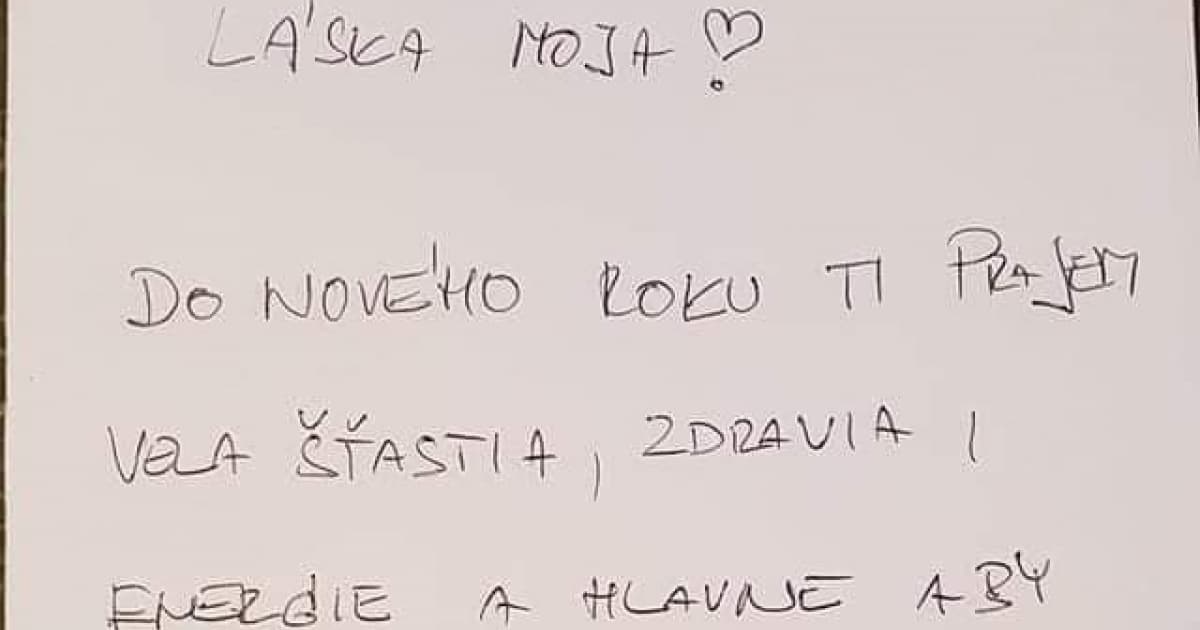 LÁSKA MOJA ♡
DO NOVÉHO ROKU TI PRAJEM
VELA ŠŤASTIA, ZDRAVIA,
ENERGIE A HLAVNE ABY